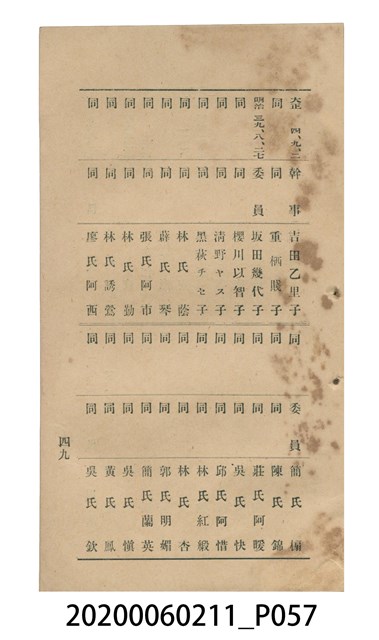 大正 四、九、二 幹事 吉田乙里子 同 委員 簡氏楣
同 同 重栖賤子 同 同 陳氏錦
明治 三九、八、二七 委員 坂田幾代子 同 同 莊氏阿暖
同 同 櫻川以智子 同 同 吳氏快
同 同 淸野ヤス子 同 同 邱氏阿惜
同 同 黑萩チセ子 同 同 林氏紅緞
同 同 林氏蔭 同 同 林氏杏
同 同 蘇氏琴 同 同 郭氏明媚
同 同 張氏阿市 同 同 簡氏蘭英
同 同 林氏勤 同 同 吳氏愼
同 同 林氏誘鶯 同 同 黃氏鳳
同 同 廖氏阿酉 同 同 吳氏欽
四九
20200060211_P057